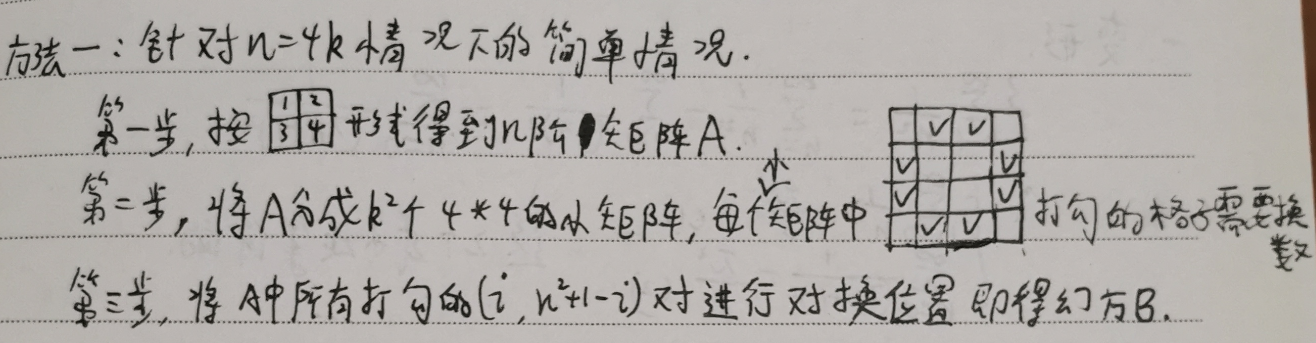 方法一：针对n=4k情况下的简单情况.
第一步，按 1 2 3 4 形式得到n阶矩阵A.
第二步，将A分成k²个4*4的小矩阵，每个小矩阵中 打勾的格子需要换数
第三步，将A中所有打勾的(i, n²+1-i)对进行对换位置即得幻方B.